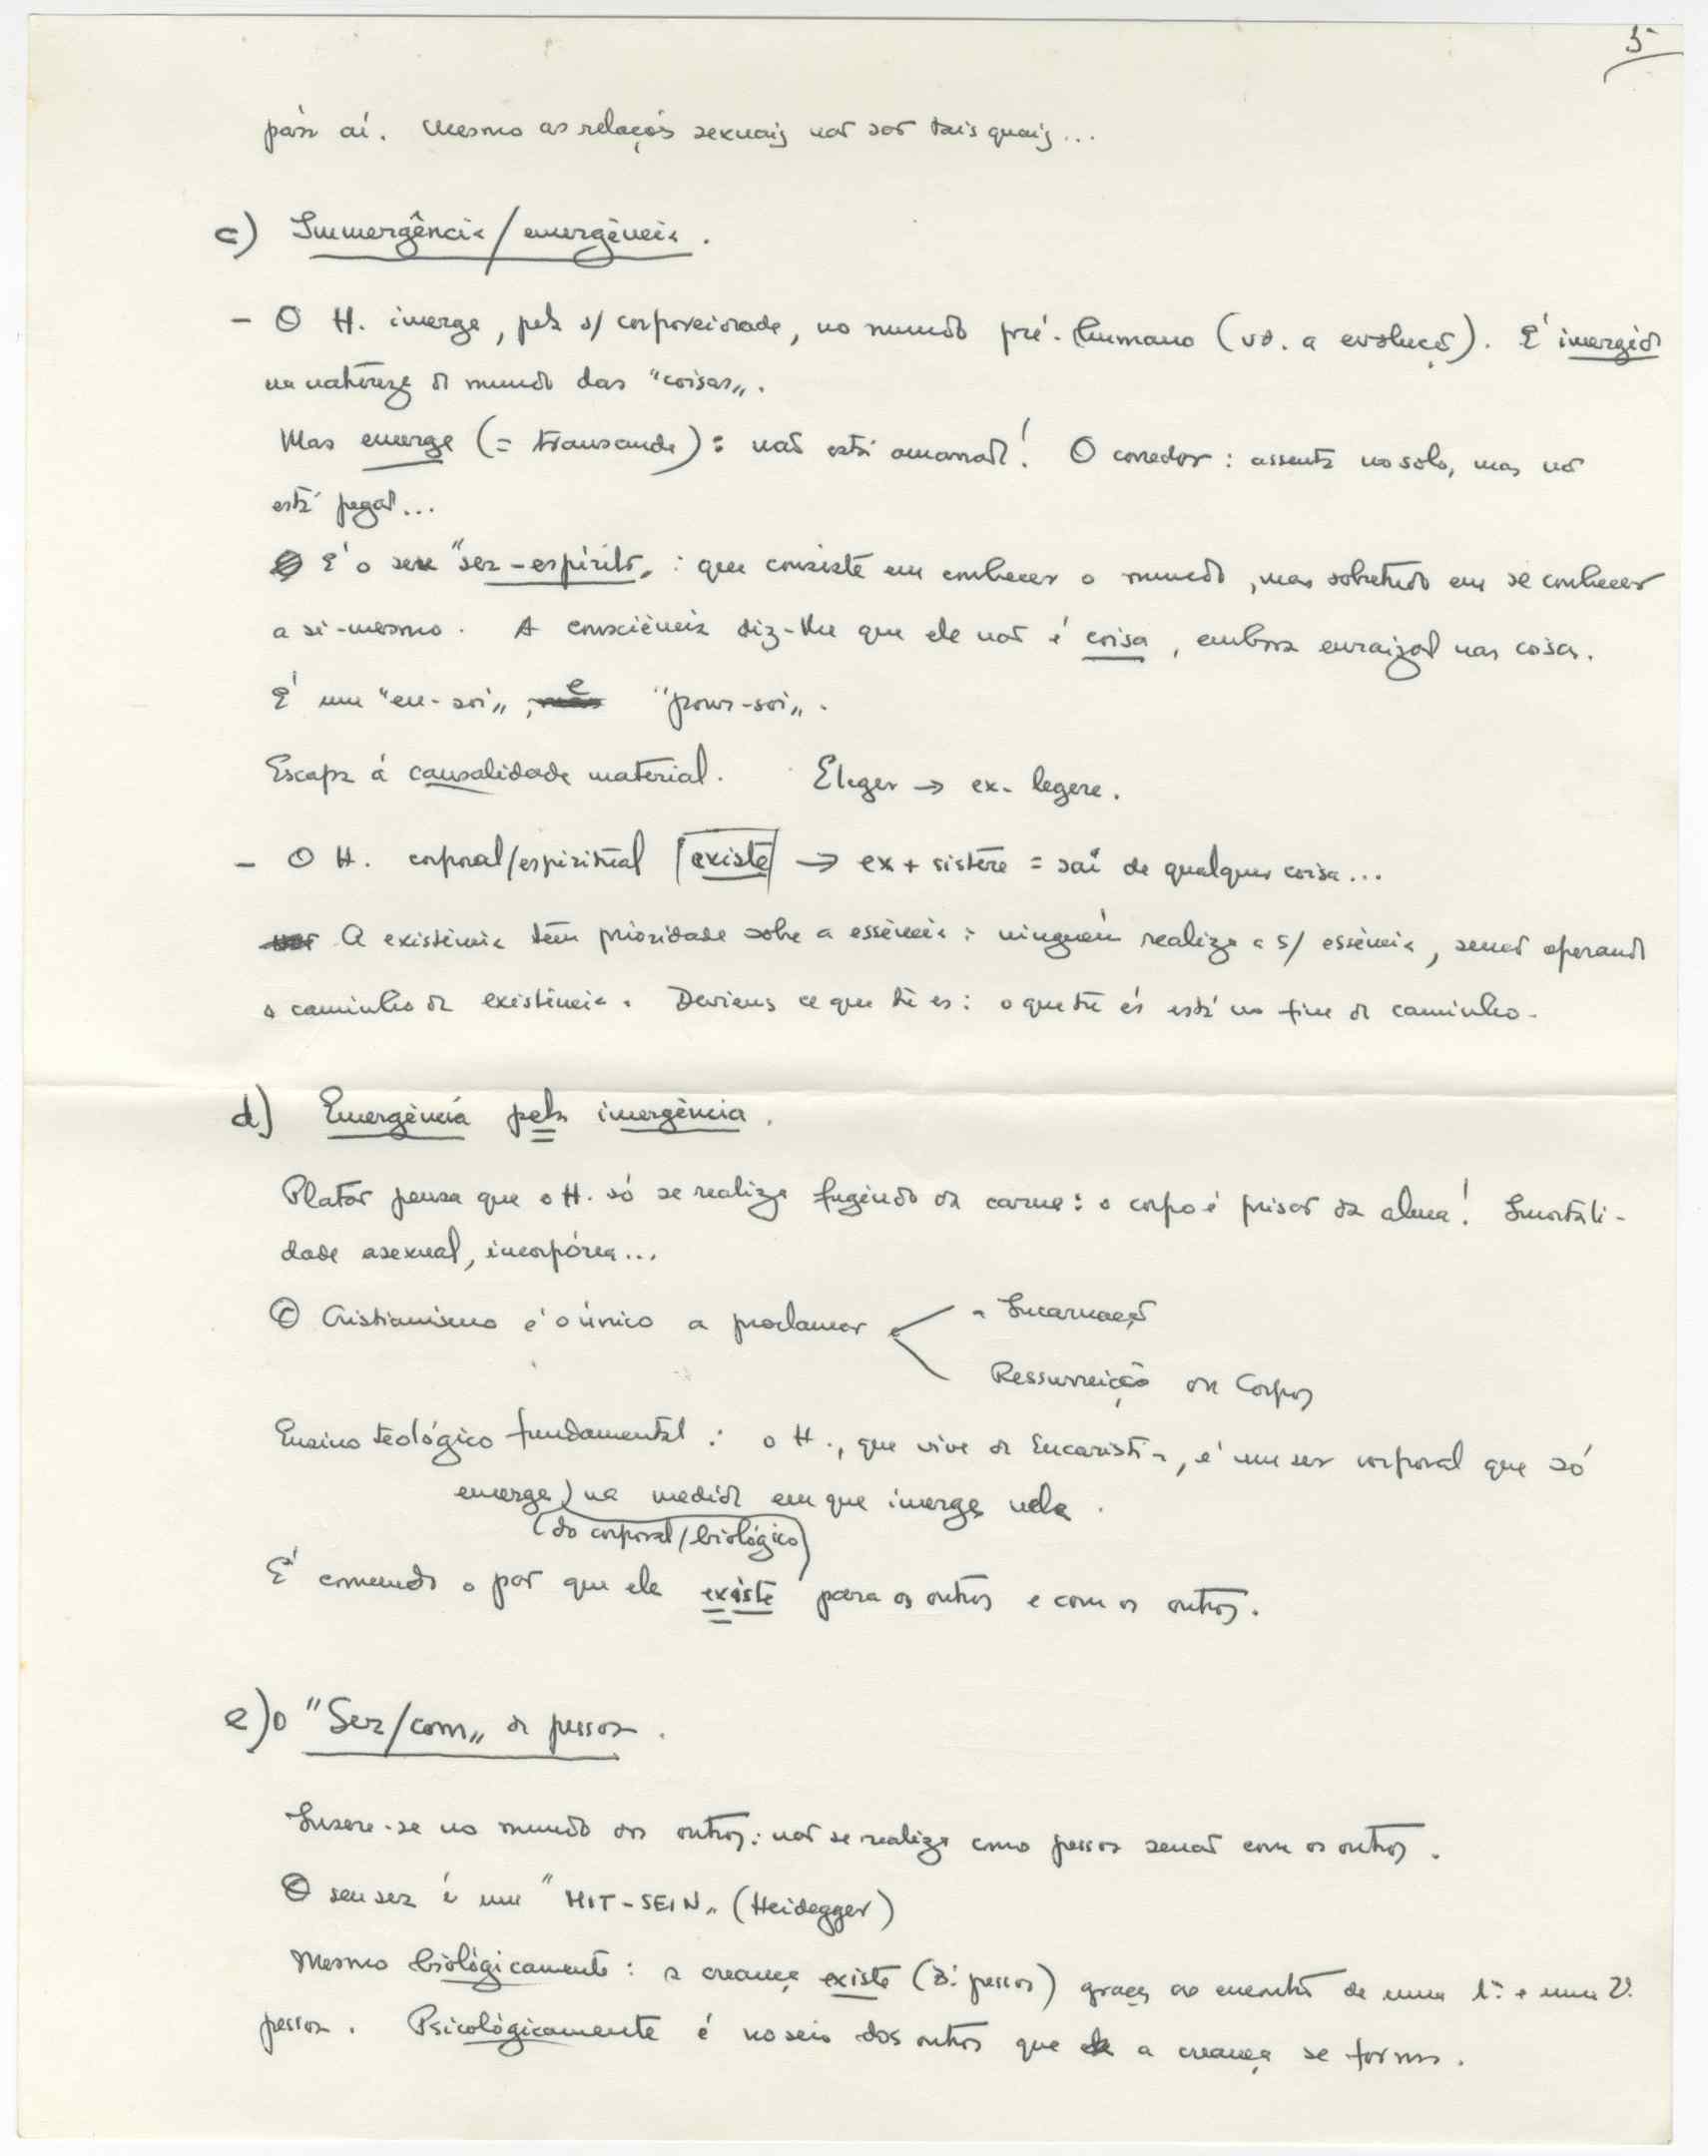 5
pára aí. Mesmo as relações sexuais não são tais quais...
c) Immergência/emergência.
- O H. imerge, pela s/ corporeidade, no mundo pré-humano (vd. a evolução). É imergido
na natureza do mundo das "coisas".
Mas emerge (= transcende): não está amarrado! O corredor: assenta no solo, mas não
está pegado...
É o seu "ser-espírito": que consiste em conhecer o mundo, mas sobretudo em se conhecer
a si-mesmo. A consciência diz-lhe que ele não é coisa, embora enraizado nas coisas.
É um "en-soi", e "pour-soi".
Escapa á causalidade material. Eleger → ex-legere.
- O H. corporal/espiritual existe → ex + sistere = sai de qualquer coisa...
A existência tem prioridade sobre a essência: ninguém realiza a s/ essência, senão operando
o caminho da existência. Deviens ce que tu es: o que tu és está no fim do caminho.
d) Emergência pela imergência.
Platão pensa que o H. só se realiza fugindo da carne: o corpo é prisão da alma! Imortali-
dade asexual, incorpórea...
O Cristianismo é o único a proclamar a Incarnação
Ressurreição dos Corpos
Ensino teológico fundamental: o H., que vive da Eucaristia, é um ser corporal que só
emerge na medida em que imerge nele.
(do corporal/biológico)
É comendo o pão que ele existe para os outros e com os outros.
e) O "Ser/com" da pessoa.
Insere-se no mundo dos outros: não se realiza como pessoa senão com os outros.
O seu ser é um "MIT-SEIN" (Heidegger)
Mesmo biológicamente: a creança existe (3ª pessoa) graças ao encontro de uma 1ª e uma 2ª
pessoa. Psicológicamente é no seio dos outros que a creança se forma.